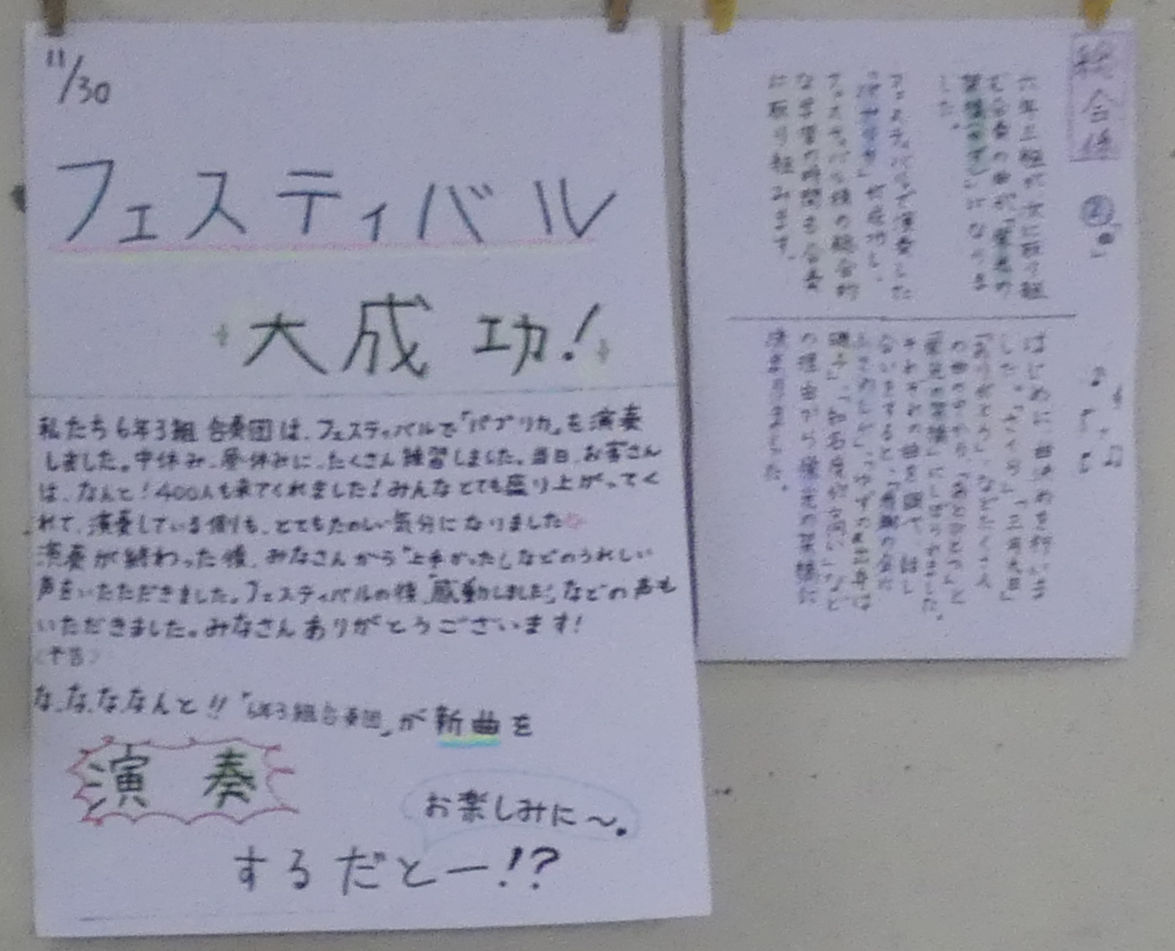 11/30
フェスティバル
大成功!
私たち6年3組合奏団は、フェスティバルで「パプリカ」を演奏
しました。中休み、昼休みに、たくさん練習しました。当日、お客さん
は、なんと!400人も来てくれました!みんなとても盛り上がってく
れて、演奏している側も、とてもたのしい気分になりました
演奏が終わった後、みなさんから「上手かった」などのうれしい
声をいただきました。フェスティバルの後、「感動しました」などの声も
いただきました。みなさんありがとうございます!
〈予告〉
な、な、ななんと!!「6年3組合奏団」が新曲を
演奏
お楽しみに〜。
するだとー!?
総合係
六年三組が次に取り組
む合奏の曲が「栄光の
架橋(ゆず)」になりま
した。
フェスティバルで演奏した
が成功し、
フェスティバル後の総合的
な学習の時間も合奏
に取り組みます。
はじめに、曲決めを行いま
した。「さくら」「三月九日」
「ありがとう」などたくさん
の曲の中から「あとひとつ」と
「栄光の架橋」にしぼりました。
それぞれの曲を調べ、話し
合いをすると、「感謝の会に
ふさわしい」「ゆずの
「知名度が高い」など
の理由から栄光の架橋に
決まりました。